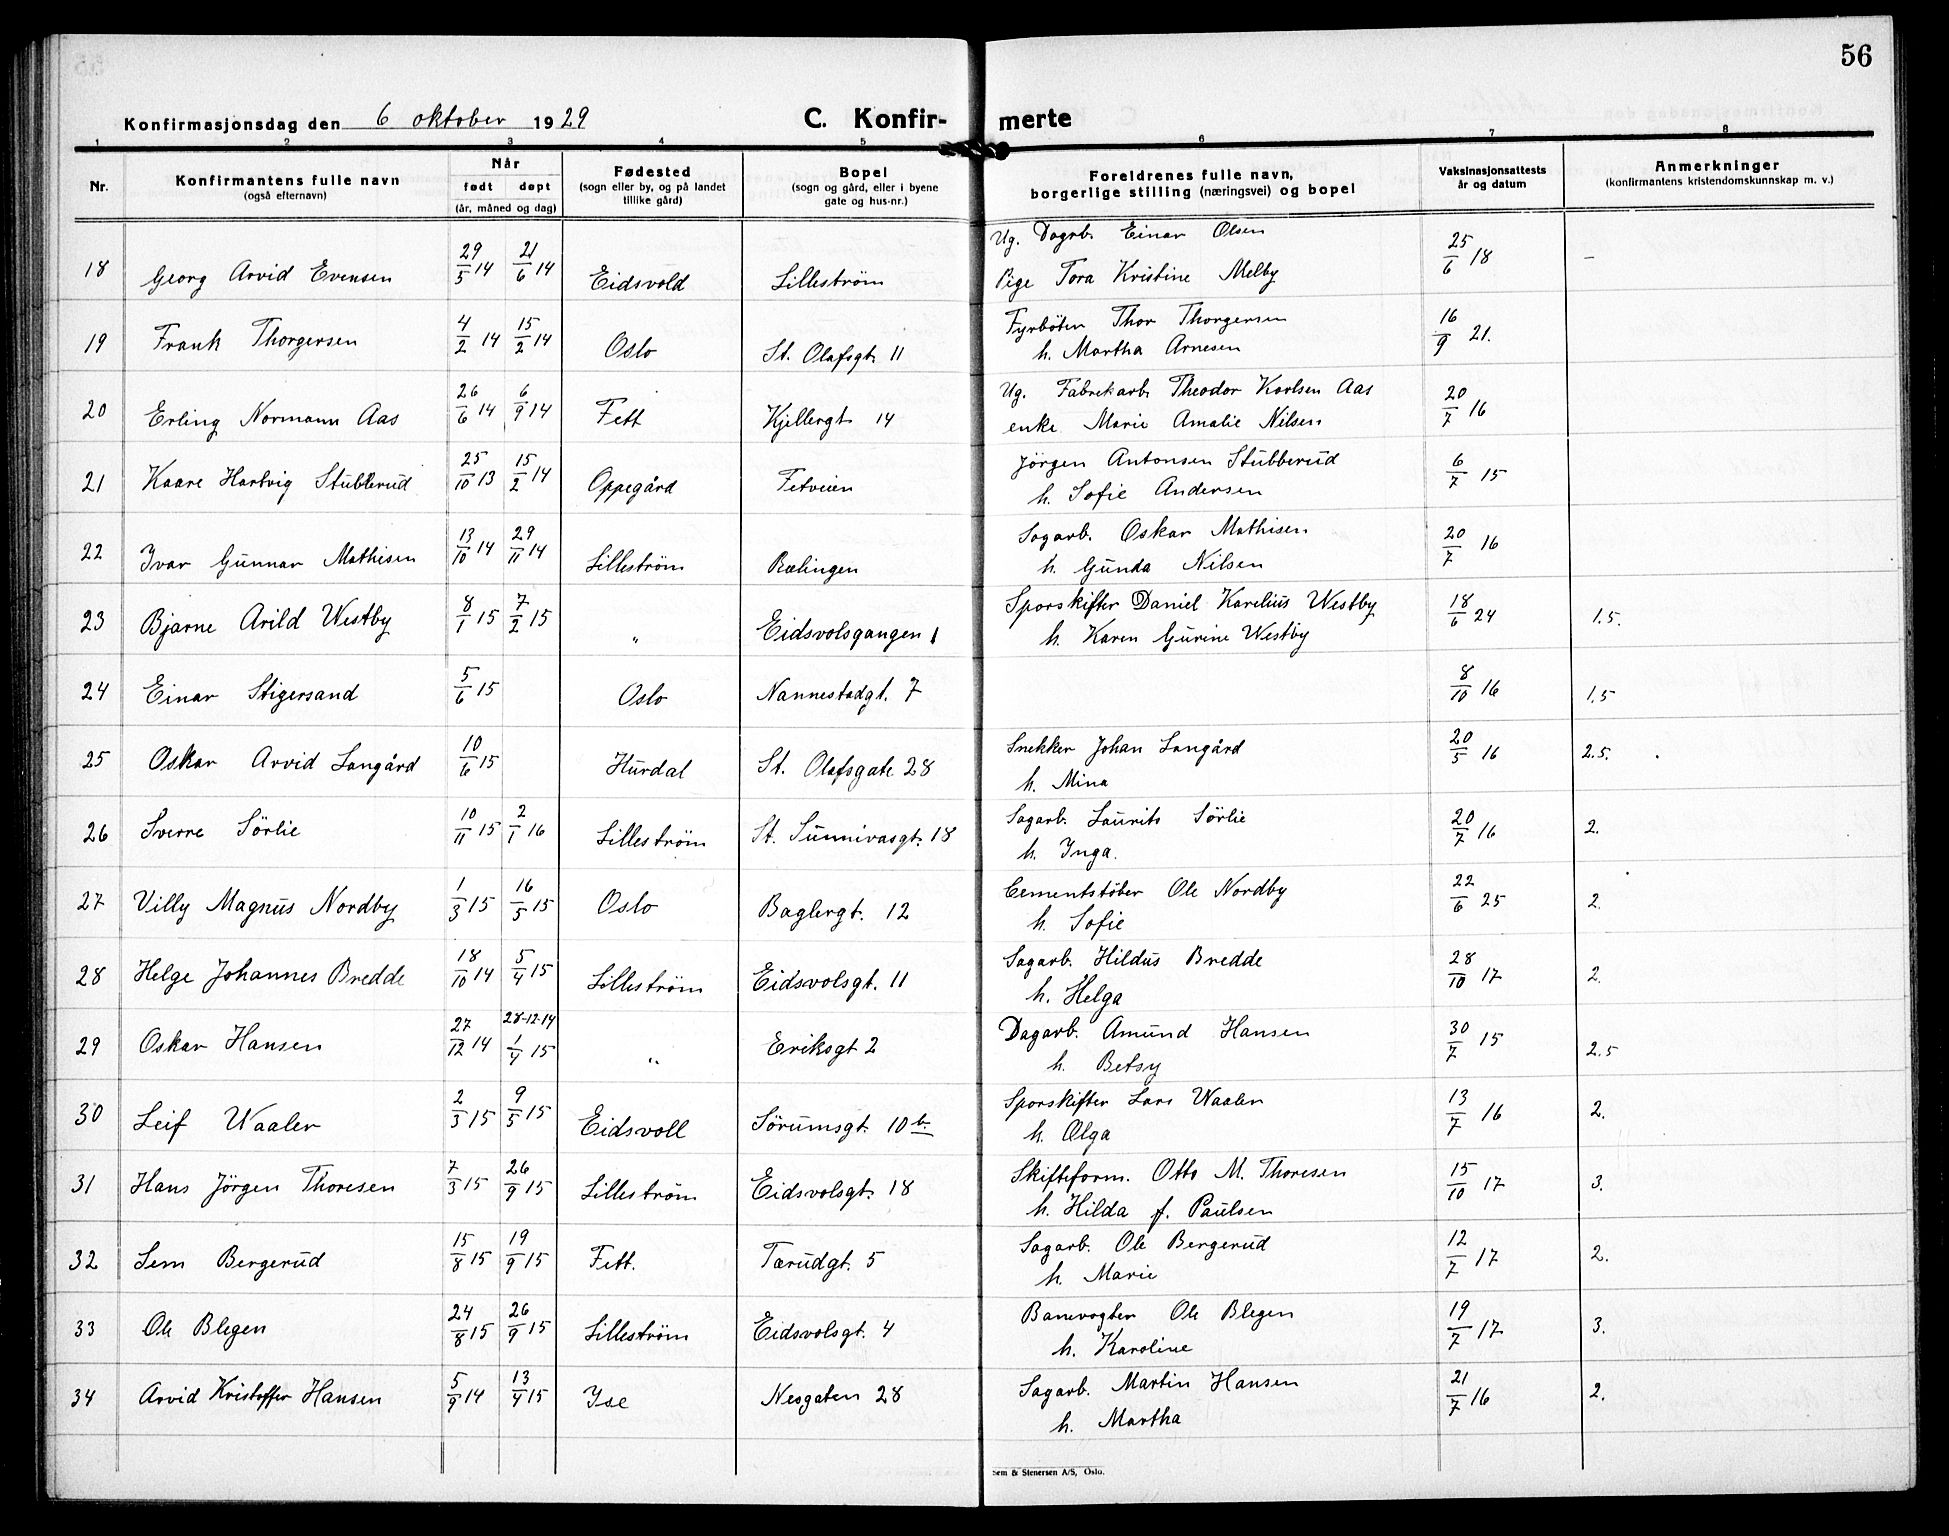 56
Konfirmasjonsdag den 6 oktober 1929
C. Konfirmerte
1 2 3 4 5 6 7 8
Nr.
Konfirmantens fulle navn
(også efternavn)
Når
født døpt
(år, måned og dag)
Fødested
(sogn eller by, og på landet
tillike gård)
Bopel
(sogn og gård, eller i byene
gate og hus-nr.)
Foreldrenes fulle navn,
borgerlige stilling (næringsvei) og bopel
Vaksinasjonsattests
år og datum
Anmerkninger
(konfirmantens kristendomskunnskap m. v.)
18 Georg Arvid Evensen 29/5 14 21/6 14 Eidsvold Lillestrøm Ug. Dagrb. Einar Olsen 25/6 18 –
Pige Tora Kristine Melby
19 Frank Thorgersen 4/2 14 15/2 14 Oslo St. Olafsgt. 11 Fyrbøter Thor Thorgersen 16/9 21.
h. Martha Arnesen
20 Erling Normann Aas 26/6 14 6/9 14 Fett Kjellergt. 14 Ug. Fabrekarb. Theodor Karlsen Aas 20/7 16
enke Marie Amalie Nilsen
21 Kaare Hartvig Stubberud 25/10 13 15/2 14 Oppegård Fetveien Jörgen Antonsen Stubberud 6/7 15
h. Sofie Andersen
22 Ivar Gunnar Mathisen 13/10 14 29/11 14 Lillestrøm Rælingen Sagarb. Oskar Mathisen 20/7 16
h. Gunda Nilsen
23 Bjarne Arild Westby 8/1 15 7/2 15 " Eidsvolsgangen 1 Sporskifter Daniel Karelius Westby 18/6 24 1.5.
h. Karen Gurine Westby
24 Einar Stigersand 5/6 15 Oslo Nannestadgt. 7 8/10 16 1.5
25 Oskar Arvid Langård 10/6 15 Hurdal St. Olafsgate 28 Snekker Johan Langård 20/5 16 2.5.
h. Mina
26 Sverre Sörlie 10/11 15 2/1 16 Lillestrøm St. Sunnivasgt. 18 Sagarb. Laurits Sörlie 20/7 16 2.
h. Inga.
27 Villy Magnus Nordby 1/3 15 16/5 15 Oslo Baglergt. 12 Cementstöber Ole Nordby 22/6 25 2.
h. Sofie
28 Helge Johannes Bredde 18/10 14 5/4 15 Lillestrøm Eidsvolsgt. 11 Sagarb. Hildus Bredde 28/10 17 2.
h. Helga
29 Oskar Hansen 27/12 14 28-12-14 1/4 15 " Eriksgt 2 Dagarb. Amund Hansen 30/7 15 2.5
h. Betsy
30 Leif Waaler 2/3 15 9/5 15 Eidsvoll Sörumsgt. 10 b. Sporskifter Lars Waaler 13/7 16 2.
h. Olga
31 Hans Jörgen Thoresen 7/3 15 26/9 15 Lillestrøm Eidsvolsgt. 18 Skifteform. Otto M. Thoresen 15/10 17 3.
h. Hilda f. Paulsen
32 Sem Bergerud 15/8 15 19/9 15 Fett. Tærudgt. 5 Sagarb. Ole Bergerud 12/7 17 2.
h. Marie
33 Ole Blegen 24/8 15 26/9 15 Lillestrøm Eidsvolsgt. 4 Banevogter Ole Blegen 19/7 17 3.
h. Karoline
34 Arvid Kristoffer Hansen 5/9 14 13/4 15 Nesgaten 28 Sagarb. Martin Hansen 21/7 16 2.
h. Martha
Sem & Stenersen A/S, Oslo.